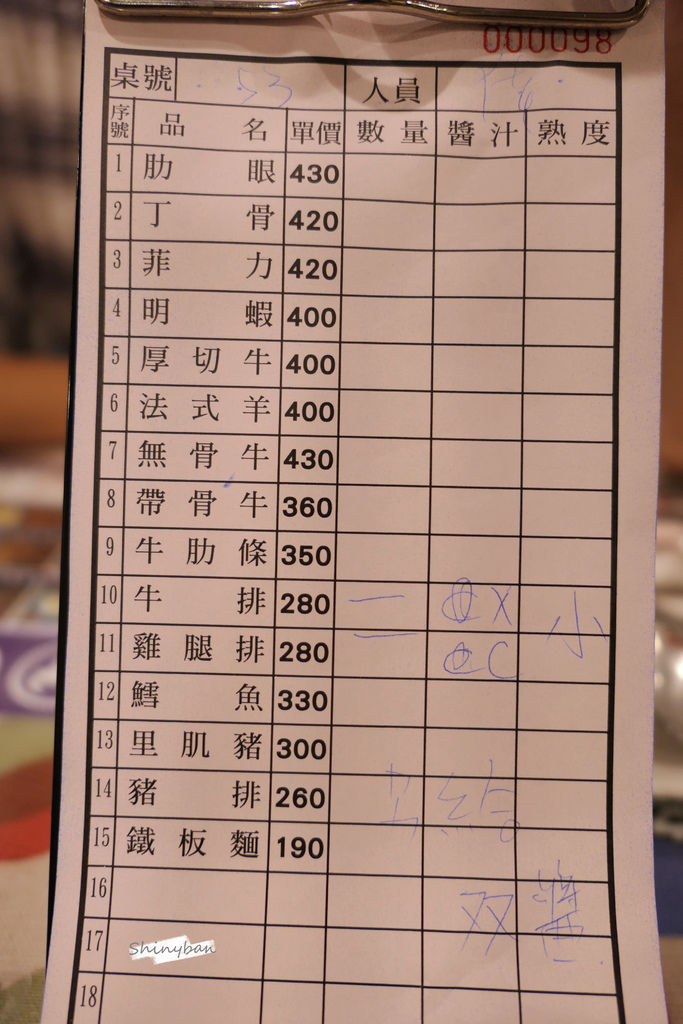 000098
桌號 53 人員
序號 品名 單價 數量 醬汁 熟度
1 肋眼 430
2 丁骨 420
3 菲力 420
4 明蝦 400
5 厚切牛 400
6 法式羊 400
7 無骨牛 430
8 帶骨牛 360
9 牛肋條 350
10 牛排 280 二 小
11 雞腿排 280
12 鱈魚 330
13 里肌豬 300
14 豬排 260
15 鐵板麵 190
16
双醬
17 Shinyban
18